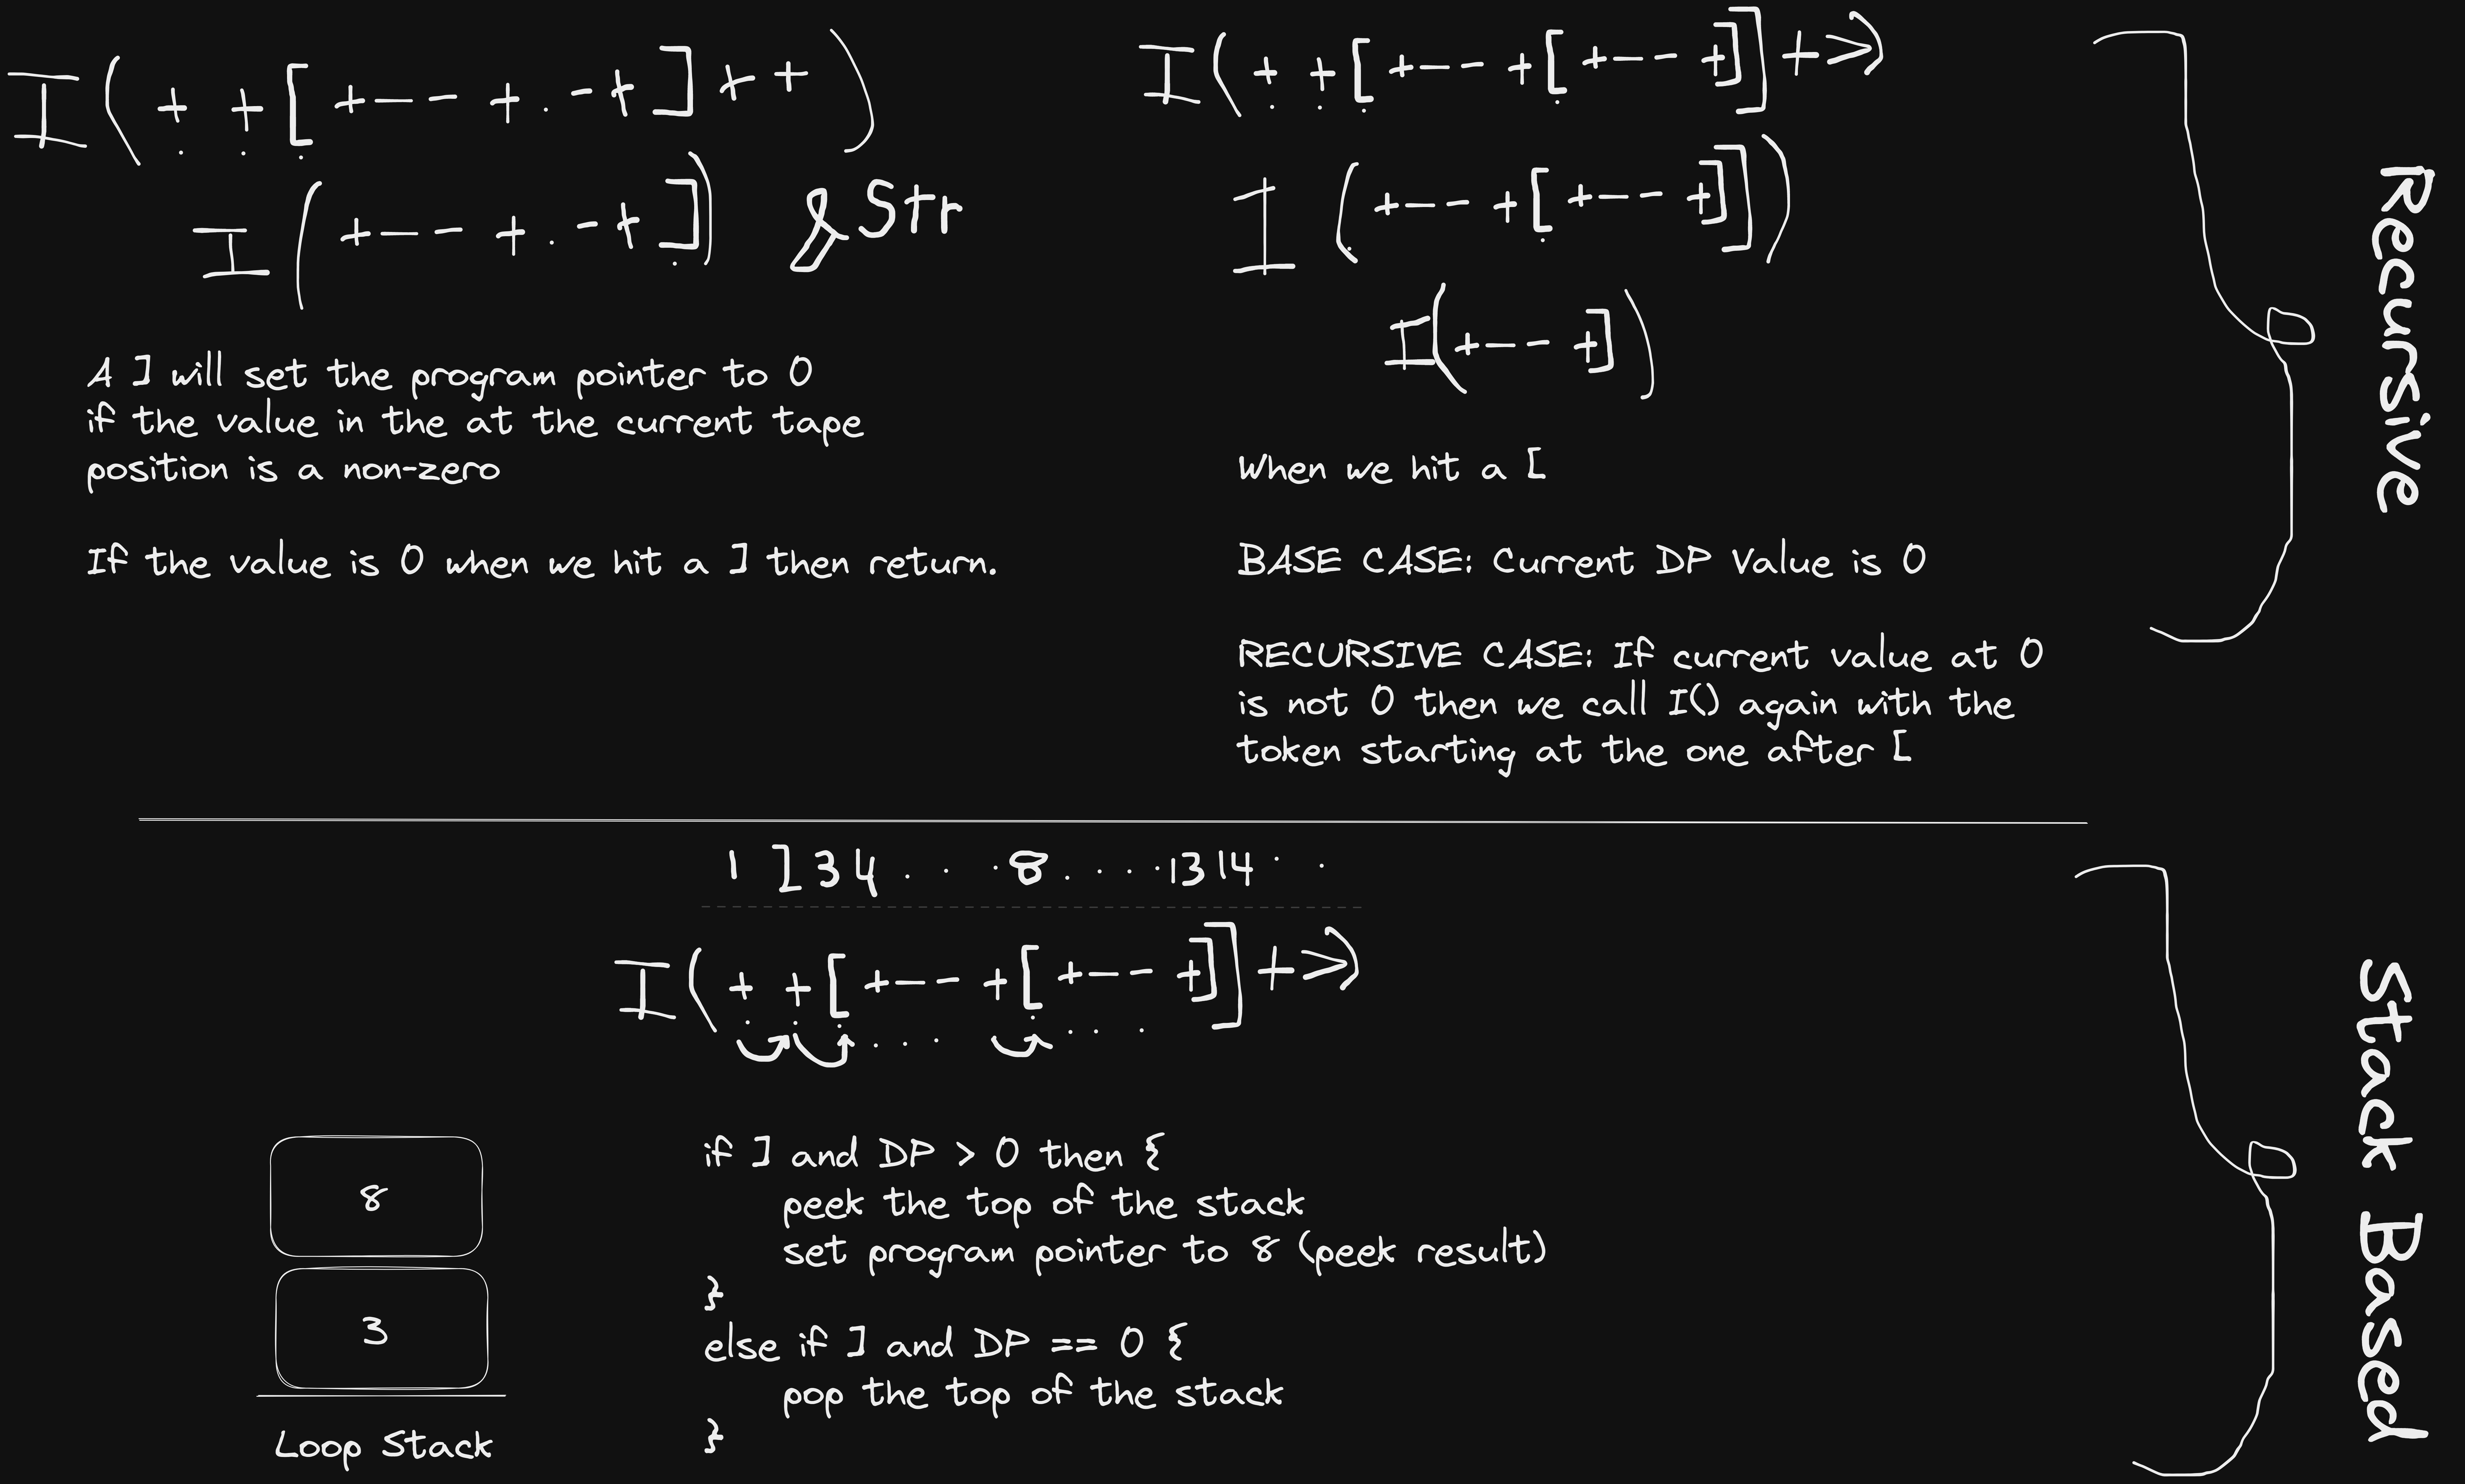 I(++[+--+.-+]++)
I(+--+.-+])
&Str
A ] will set the program pointer to 0
if the value in the at the current tape
position is a non-zero
If the value is 0 when we hit a ] then return.
I(++[+--+[+--+]]+>)
I(+--+[+--+]])
I(+--+])
When we hit a [
BASE CASE: Current DP Value is 0
RECURSIVE CASE: If current value at 0
is not 0 then we call I() again with the
token starting at the one after [
Recursive
1 ] 3 4 . . . 8 . . . . 13 14 . .
I(++[+--+[+--+]]+>)
. . . . . .
8
3
Loop Stack
if ] and DP > 0 then {
peek the top of the stack
set program pointer to 8 (peek result)
}
else if ] and DP == 0 {
pop the top of the stack
}
Stack Based